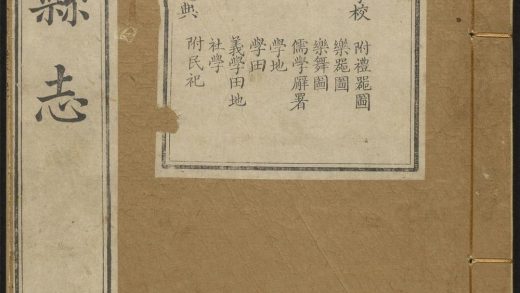 校 附禮噐圖
樂噐圖
樂舞圖
儒學廨署
學地
學田
義學田地
社學
典 附民祀
縣志